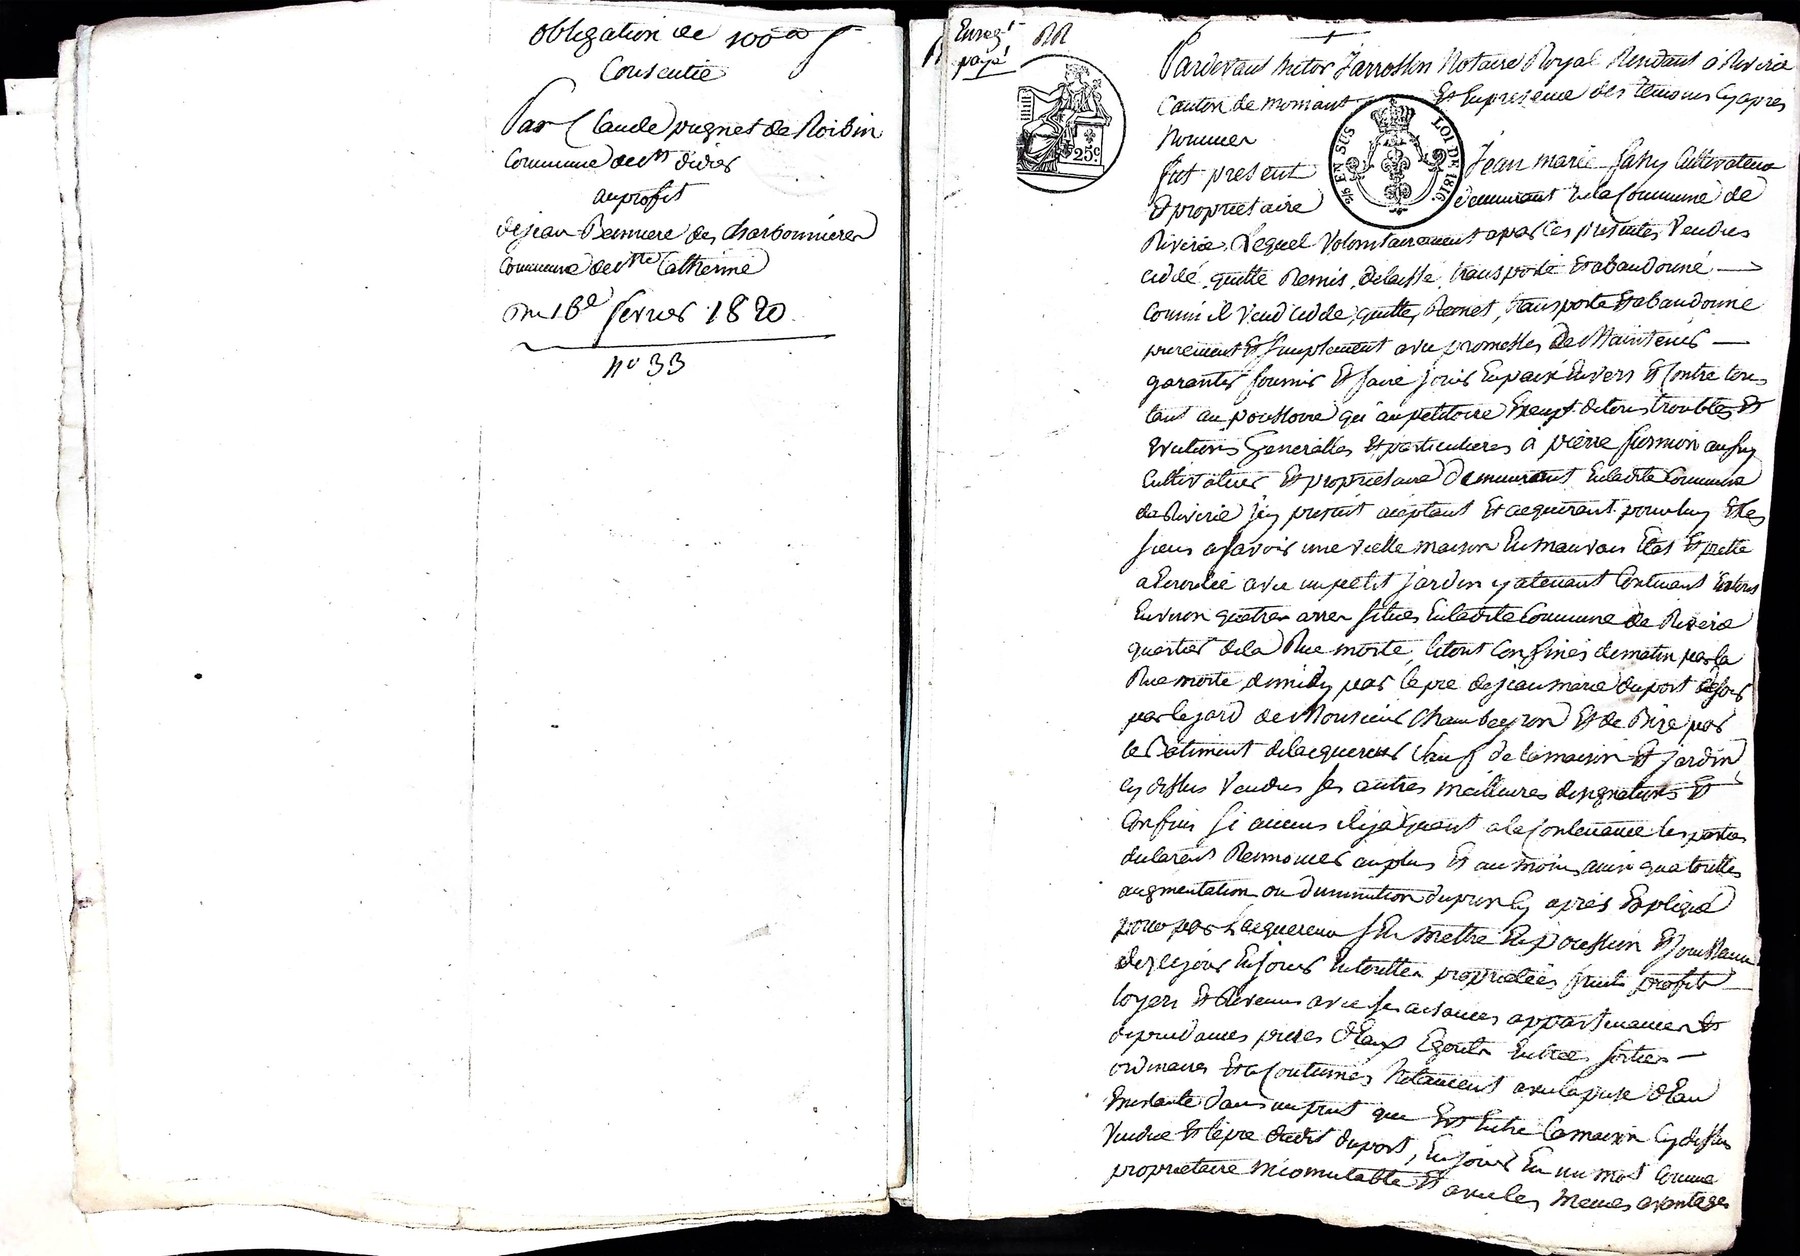 obligation de 100 f
Consentie
Par Claude pugnet de Noibin
Commune de st didier
au profit
de jean Benniere des charbonnieres
Commune de ste Catherine
Du 16e fevrier 1820
no 33
Enregt
payé
25c
EN SUS
LOI DE 1816
Pardevant victor Jarrossin Notaire Royal Resident a Riverie
Canton de mornant Et En presence des temoins Cy apres
Nommer
fut present Jean marie fahy Cultivateur
Et proprietaire demeurant En la Commune de
Riverie, Lequel volontairement a par Ces presentes vendus
cedé, quitte Remis, delaissé, transporté Et abandonné
Comme il vend cedde, quitte, Remet, transporte Et abandonne
purement Et simplement avec promesses De Maintenir
garantir fournir Et faire jouir En paix Envers Et Contre tous
tant au possessoire qu'au petitoire Exempt de tous troubles Et
Evictions Generalles Et particulieres a pierre
Cultivateur Et proprietaire Demeurant En ladite Commune
de Riverie jcy present acceptant Et acquerant pour luy Et les
siens a savoir une vielle maison En mauvais Etat Et prette
a Ecroulée avec un petit jardin y atenant Contenant En tout
Environ quatres ares situés En ladite Commune de Riverie
quartier de la Rue morte, le tout Confinés de matin par la
Rue morte, de midy par le pre de jean marie duport de soir
par le jard de Monsieur Chambeyron Et de Bize par
le Batiment de lacquereur sauf de la maison Et jardin
cy dessus vendus ses autres meilleures designations Et
Confins si aucuns il y a quant a la Contenance les parties
declarent Renoncer au plus Et au moins ainsi qua touttes
augmentation ou diminution du prix Cy après Expliqué
pour par Lacquereur sen mettre En possession Et jouissance
dez ce jour En jouir En touttes proprietées fruits profits
loyers Et Revenus avec ses aisances appartenances Et
dependances prises d'Eaux Egouts Entrees sorties
ordinaires Et a Coutumés Notament avec la prise d'Eau
Existante dans un puit que Est Entre la maison Cy dessus
vendue Et le pre dudit duport, En jouir En un mot Comme
proprietaire incomutable Et avec les memes avantages